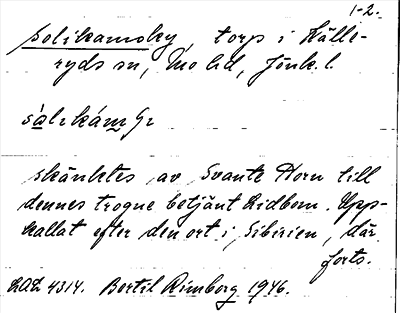 1-2.
Solikamsky, torp i Källe-
ryds sn, Mo hd, Jönk. l.
skänktes av Svante Horn till
dennes trogne betjänt Lidbom. Upp-
kallat efter den ort i Sibirien, där
forts.
ULA 4314. Bertil Rimborg 1946.